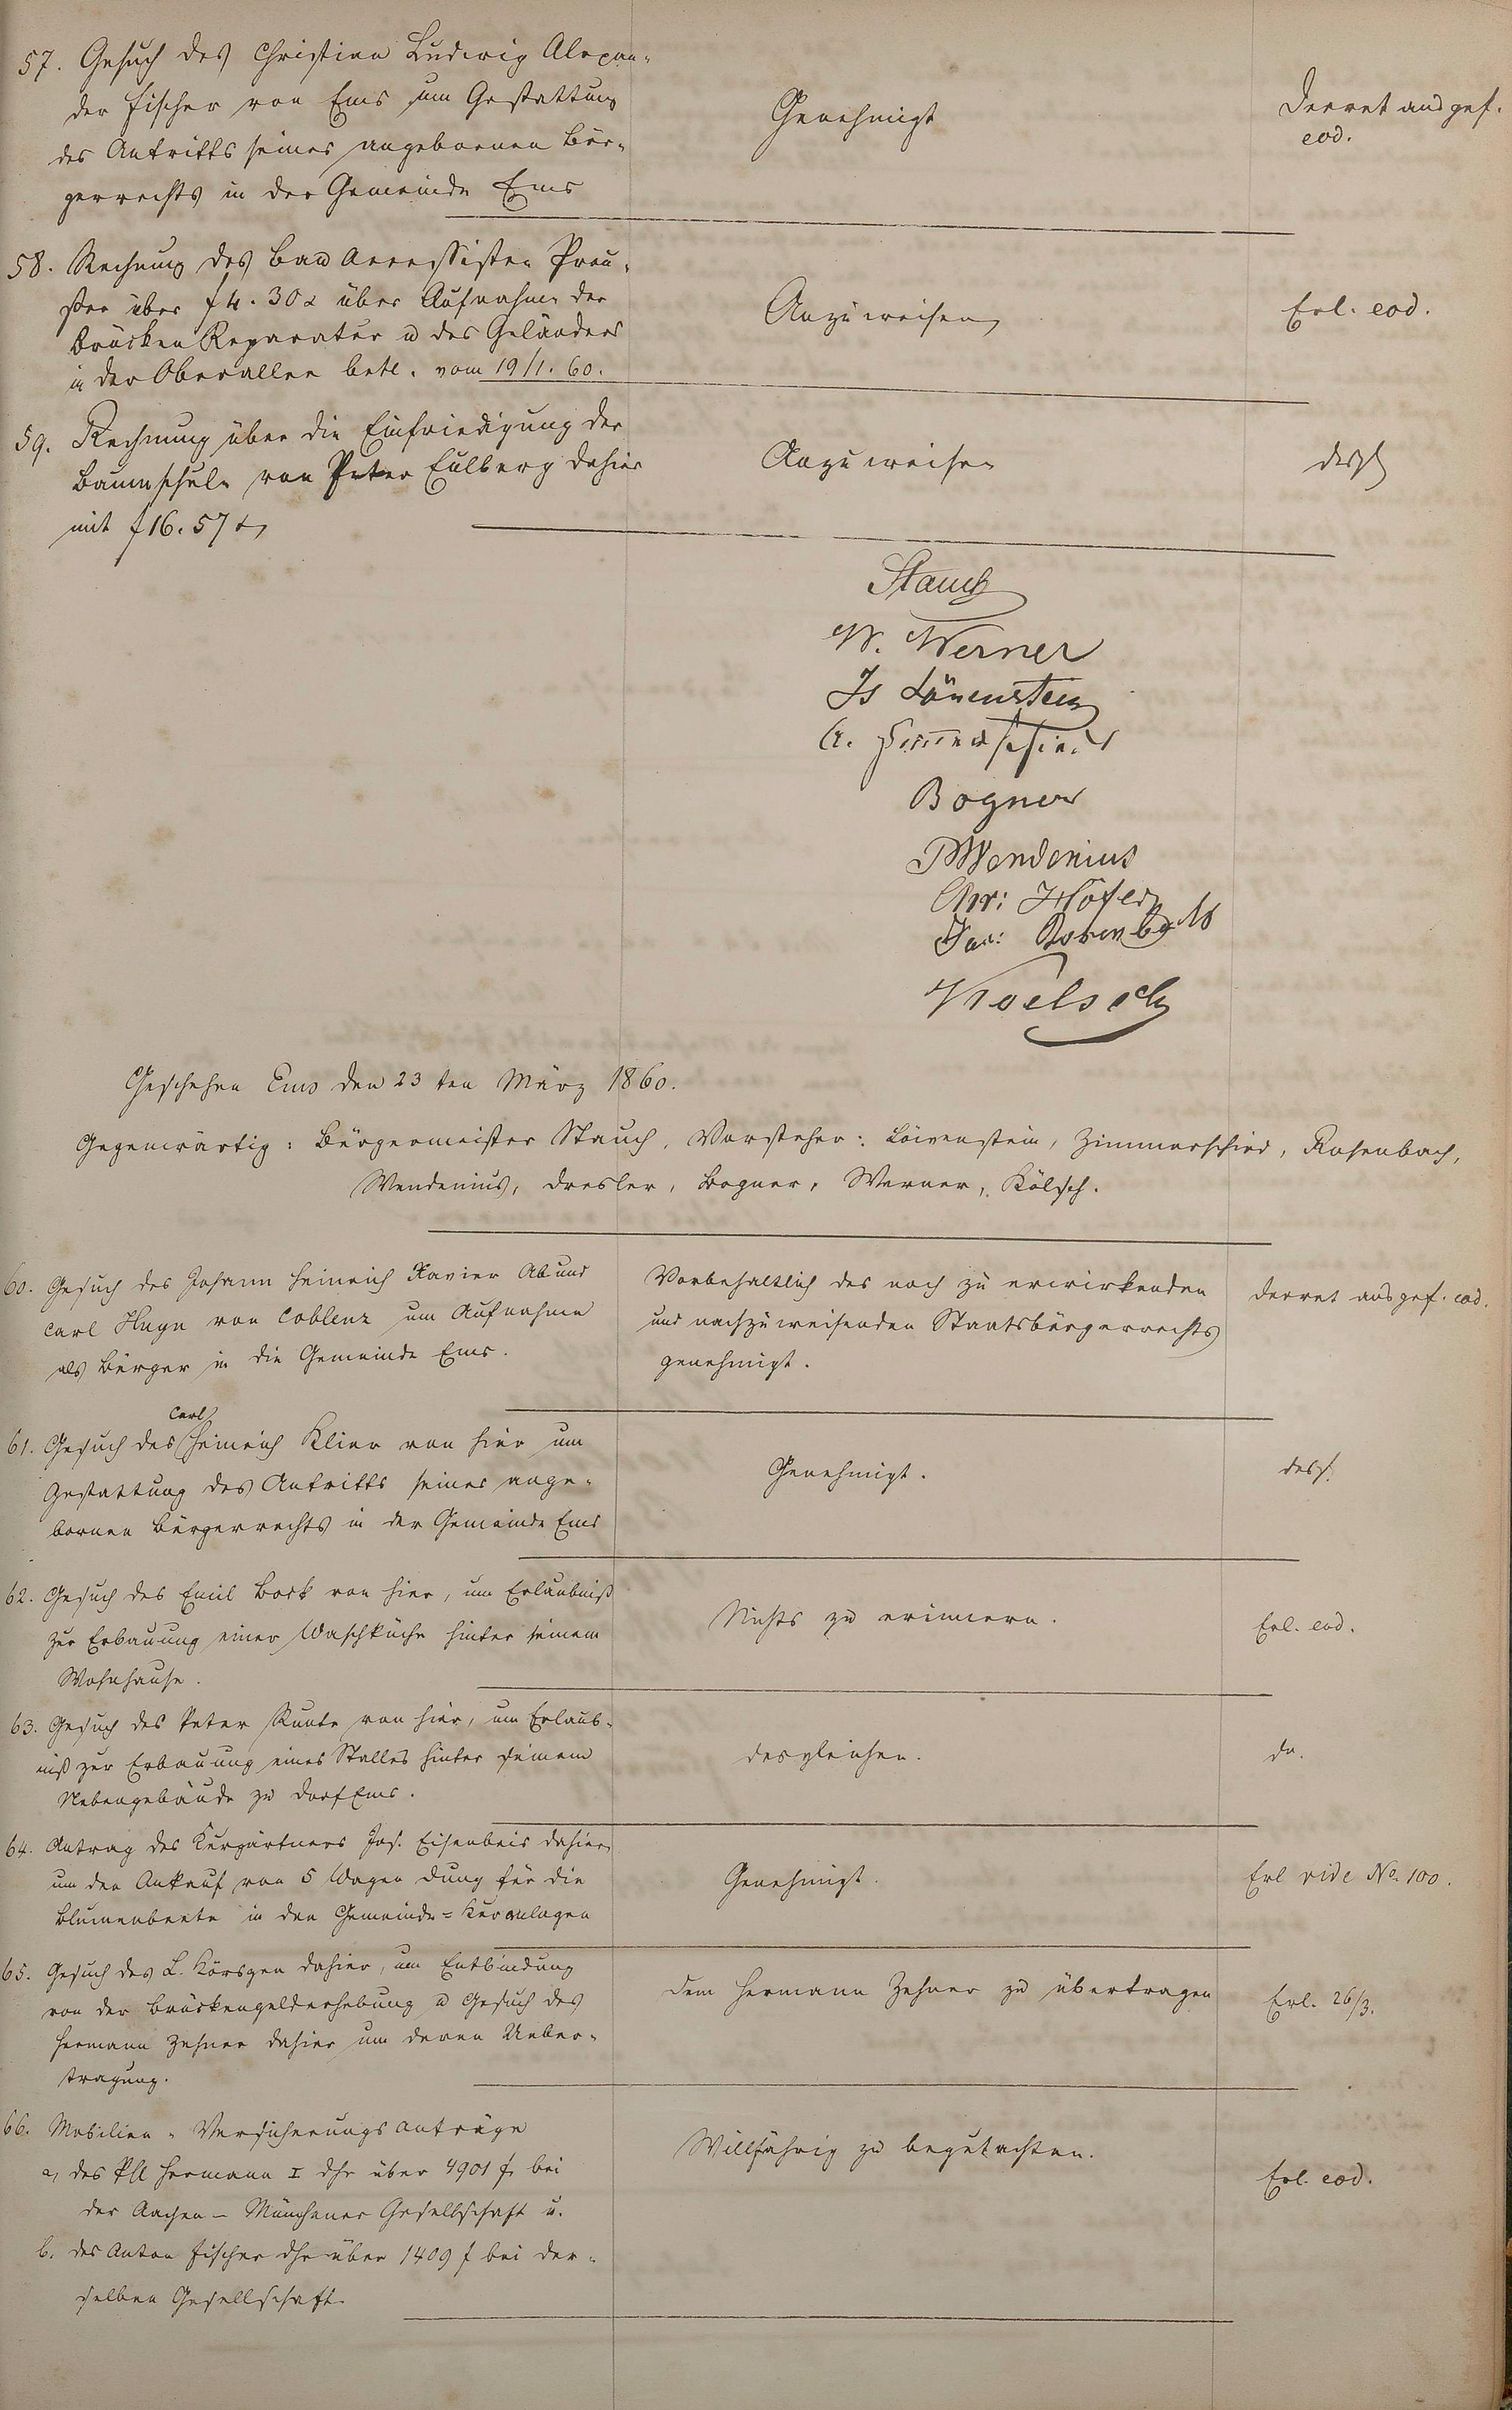 57. Gesuch des Christian Ludwig Alexan-
der Fischer von Ems um Gestattung
des Antritts seines angebornen Bür-
gerrechts in der Gemeinde Ems
Genehmigt
Decret ausgef.
eod.
58. Rechnung des Bau Accessisten Preu-
ßer über f 4. 30 x über Aufnahme der
Brücken Reparatur u des Geländers
in der Oberallee betr. vom 19/1. 60.
Anzuweisen
Erl. eod.
59. Rechnung über die Einfriedigung der
Baumschule von Peter Eulberg dahier
mit f 16. 57 x
Anzuweisen
desgl
Stauch
W. Werner
Is Löwenstein
Bogner
Wendenius
Chr: Höfer
Jac: Rosenbach
Koelsch
Geschehen Ems den 23 ten März 1860.
Gegenwärtig: Bürgermeister Stauch, Vorsteher: Löwenstein, Zimmerschied, Rosenbach,
Wendenius, Dresler, Bogner, Werner, Kölsch.
60. Gesuch des Johann Heinrich Xavier Abund
Carl Huyn von Coblenz um Aufnahme
als Bürger in die Gemeinde Ems.
Vorbehaltlich des noch zu erwirkenden
und nachzuweisenden Staatsbürgerrechts
genehmigt.
Decret ausgef. eod.
61. Gesuch des Carl Heinrich Klier von hier um
Gestattung des Antritts seines ange-
bornen Bürgerrechts in der Gemeinde Ems
Genehmigt.
desgl.
62. Gesuch des Emil Bock von hier, um Erlaubniß
zur Erbauung einer Waschküche hinter seinem
Wohnhause.
Nichts zu erinnern.
Erl. eod.
63. Gesuch des Peter Kunte von hier, um Erlaub-
niß zur Erbauung eines Stalles hinter seinem
Nebengebäude zu Dorf Ems.
desgleichen.
do.
64. Antrag des Kurgärtners Jos. Eisenbeis dahier
um den Ankauf von 5 Wagen Dung für die
Blumenbeete in den Gemeinde=Kuranlagen
Genehmigt.
Erl vide No. 100.
65. Gesuch des L. Körsgen dahier, um Entbindung
von der Brückengelderhebung u Gesuch des
Hermann Zehner dahier um deren Ueber-
tragung.
Dem Hermann Zehner zu übertragen
Erl. 26/3.
66. Mobilien-Versicherungs Anträge
a, des Phl Hermann I dhr über 4901 f. bei
der Aachen-Münchener Gesellschaft u.
b. des Anton Fischer dhr über 1409 f bei der-
selben Gesellschaft.
Willfährig zu begutachten.
Erl. eod.